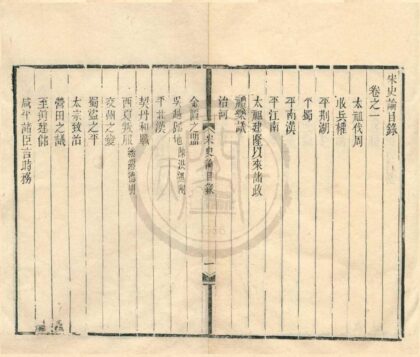 宋史論目錄
卷之一
太祖代周
收兵權
平荊湖
平蜀
平南漢
平江南
太祖建隆以來諸政
禮樂議
治河
金匱之盟
吳越歸地 陳洪進附
平北漢
契丹和戰
西夏叛服 繼遷德明
交州之變
蜀盜之平
太宗致治
營田之議
至道建儲
咸平諸臣言時務
宋史論目錄
一